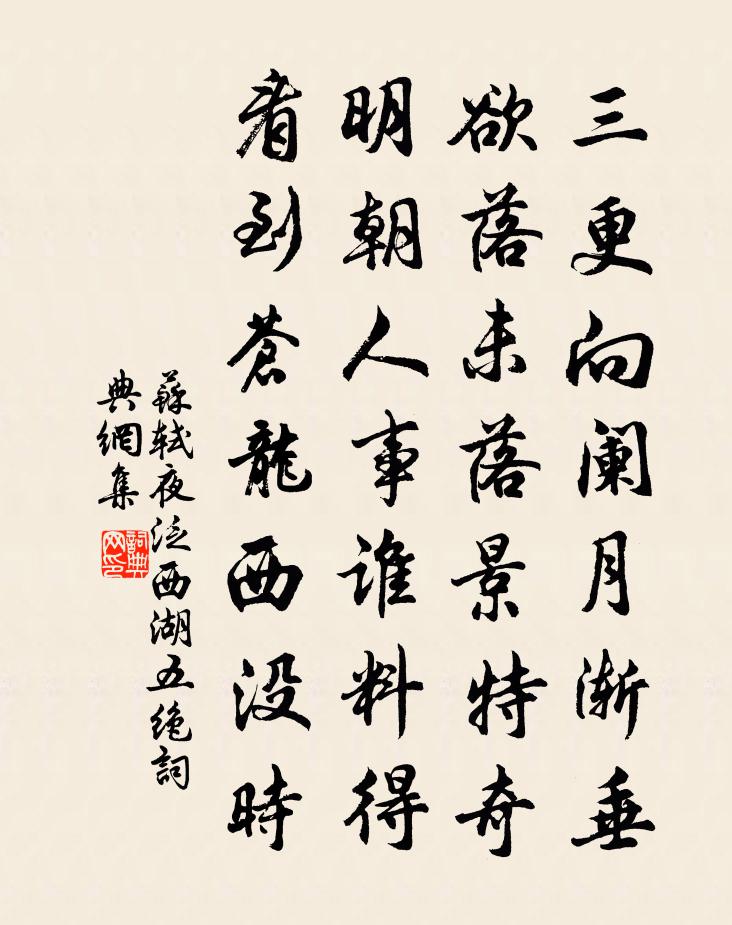 三更向阑月渐垂
欲落未落景特奇
明朝人事谁料得
看到苍龙西没时
蘇軾夜泛西湖五绝詞
典網集
詞典
网印